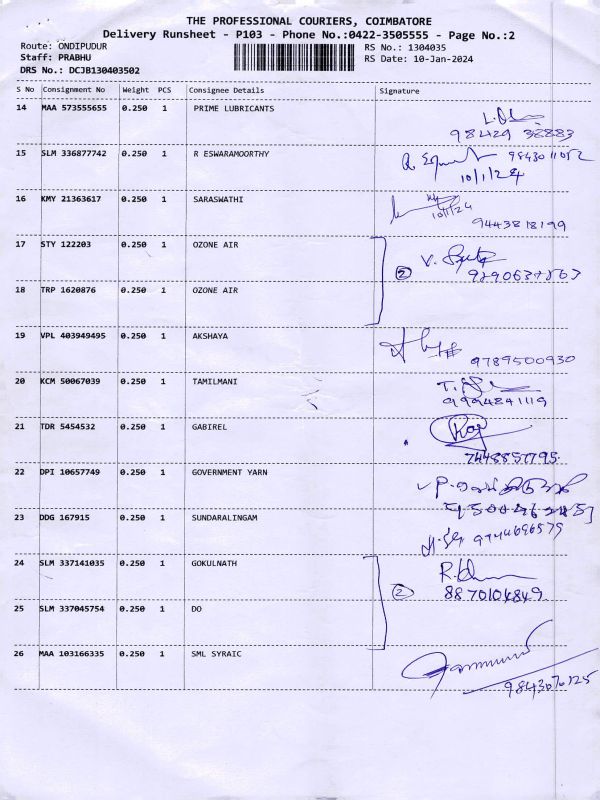 THE PROFESSIONAL COURIERS, COIMBATORE
Delivery Runsheet - P103 - Phone No.:0422-3505555 - Page No.:2
Route: ONDIPUDUR RS No.: 1304035
Staff: PRABHU RS Date: 10-Jan-2024
DRS No.: DCJB130403502
S No Consignment No Weight PCS Consignee Details Signature
14 MAA 573555655 0.250 1 PRIME LUBRICANTS
98429 38883
15 SLM 336877742 0.250 1 R ESWARAMOORTHY 9843011052
10/1/24
16 KMY 21363617 0.250 1 SARASWATHI 10/1/24
9443818199
17 STY 122203 0.250 1 OZONE AIR
2
18 TRP 1620876 0.250 1 OZONE AIR
19 VPL 403949495 0.250 1 AKSHAYA
9789500930
20 KCM 50067039 0.250 1 TAMILMANI
9994841119
21 TDR 5454532 0.250 1 GABIREL Raj
7448857795
22 DPI 10657749 0.250 1 GOVERNMENT YARN
23 DDG 167915 0.250 1 SUNDARALINGAM
9744696579
24 SLM 337141035 0.250 1 GOKULNATH
2 8870104849
25 SLM 337045754 0.250 1 DO
26 MAA 103166335 0.250 1 SML SYRAIC
9843070125